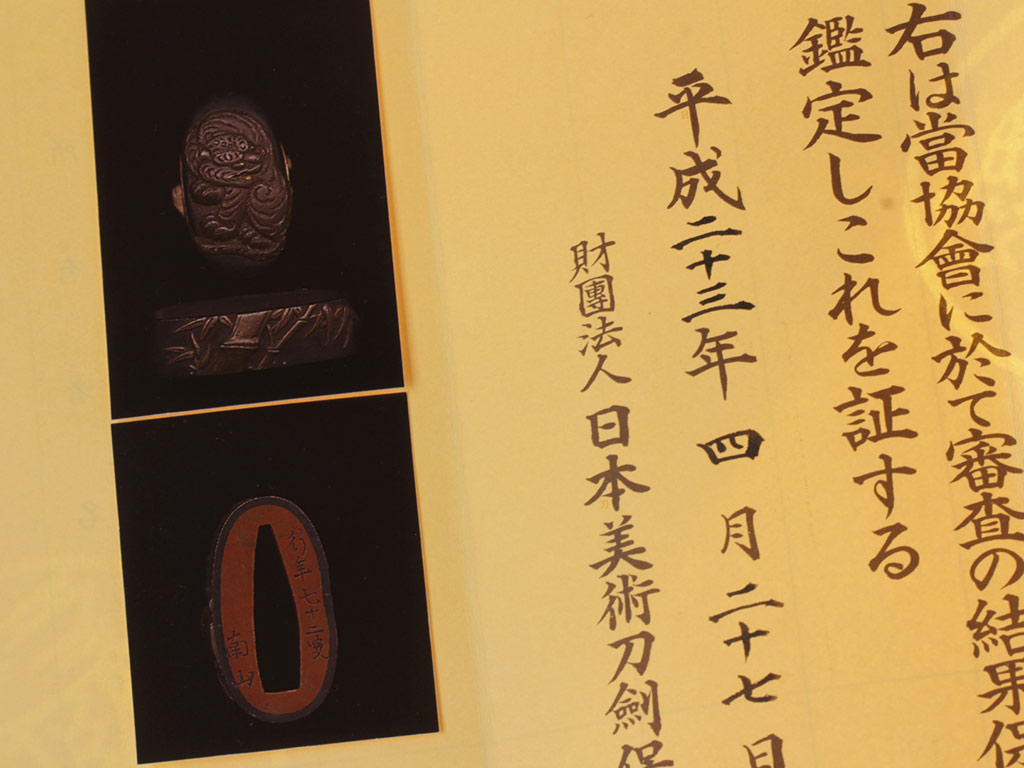 右は當協會に於て審査の結果保
鑑定しこれを証する
平成二十三年四月二十七日
財團法人日本美術刀劍保
行年七十二叟
南山